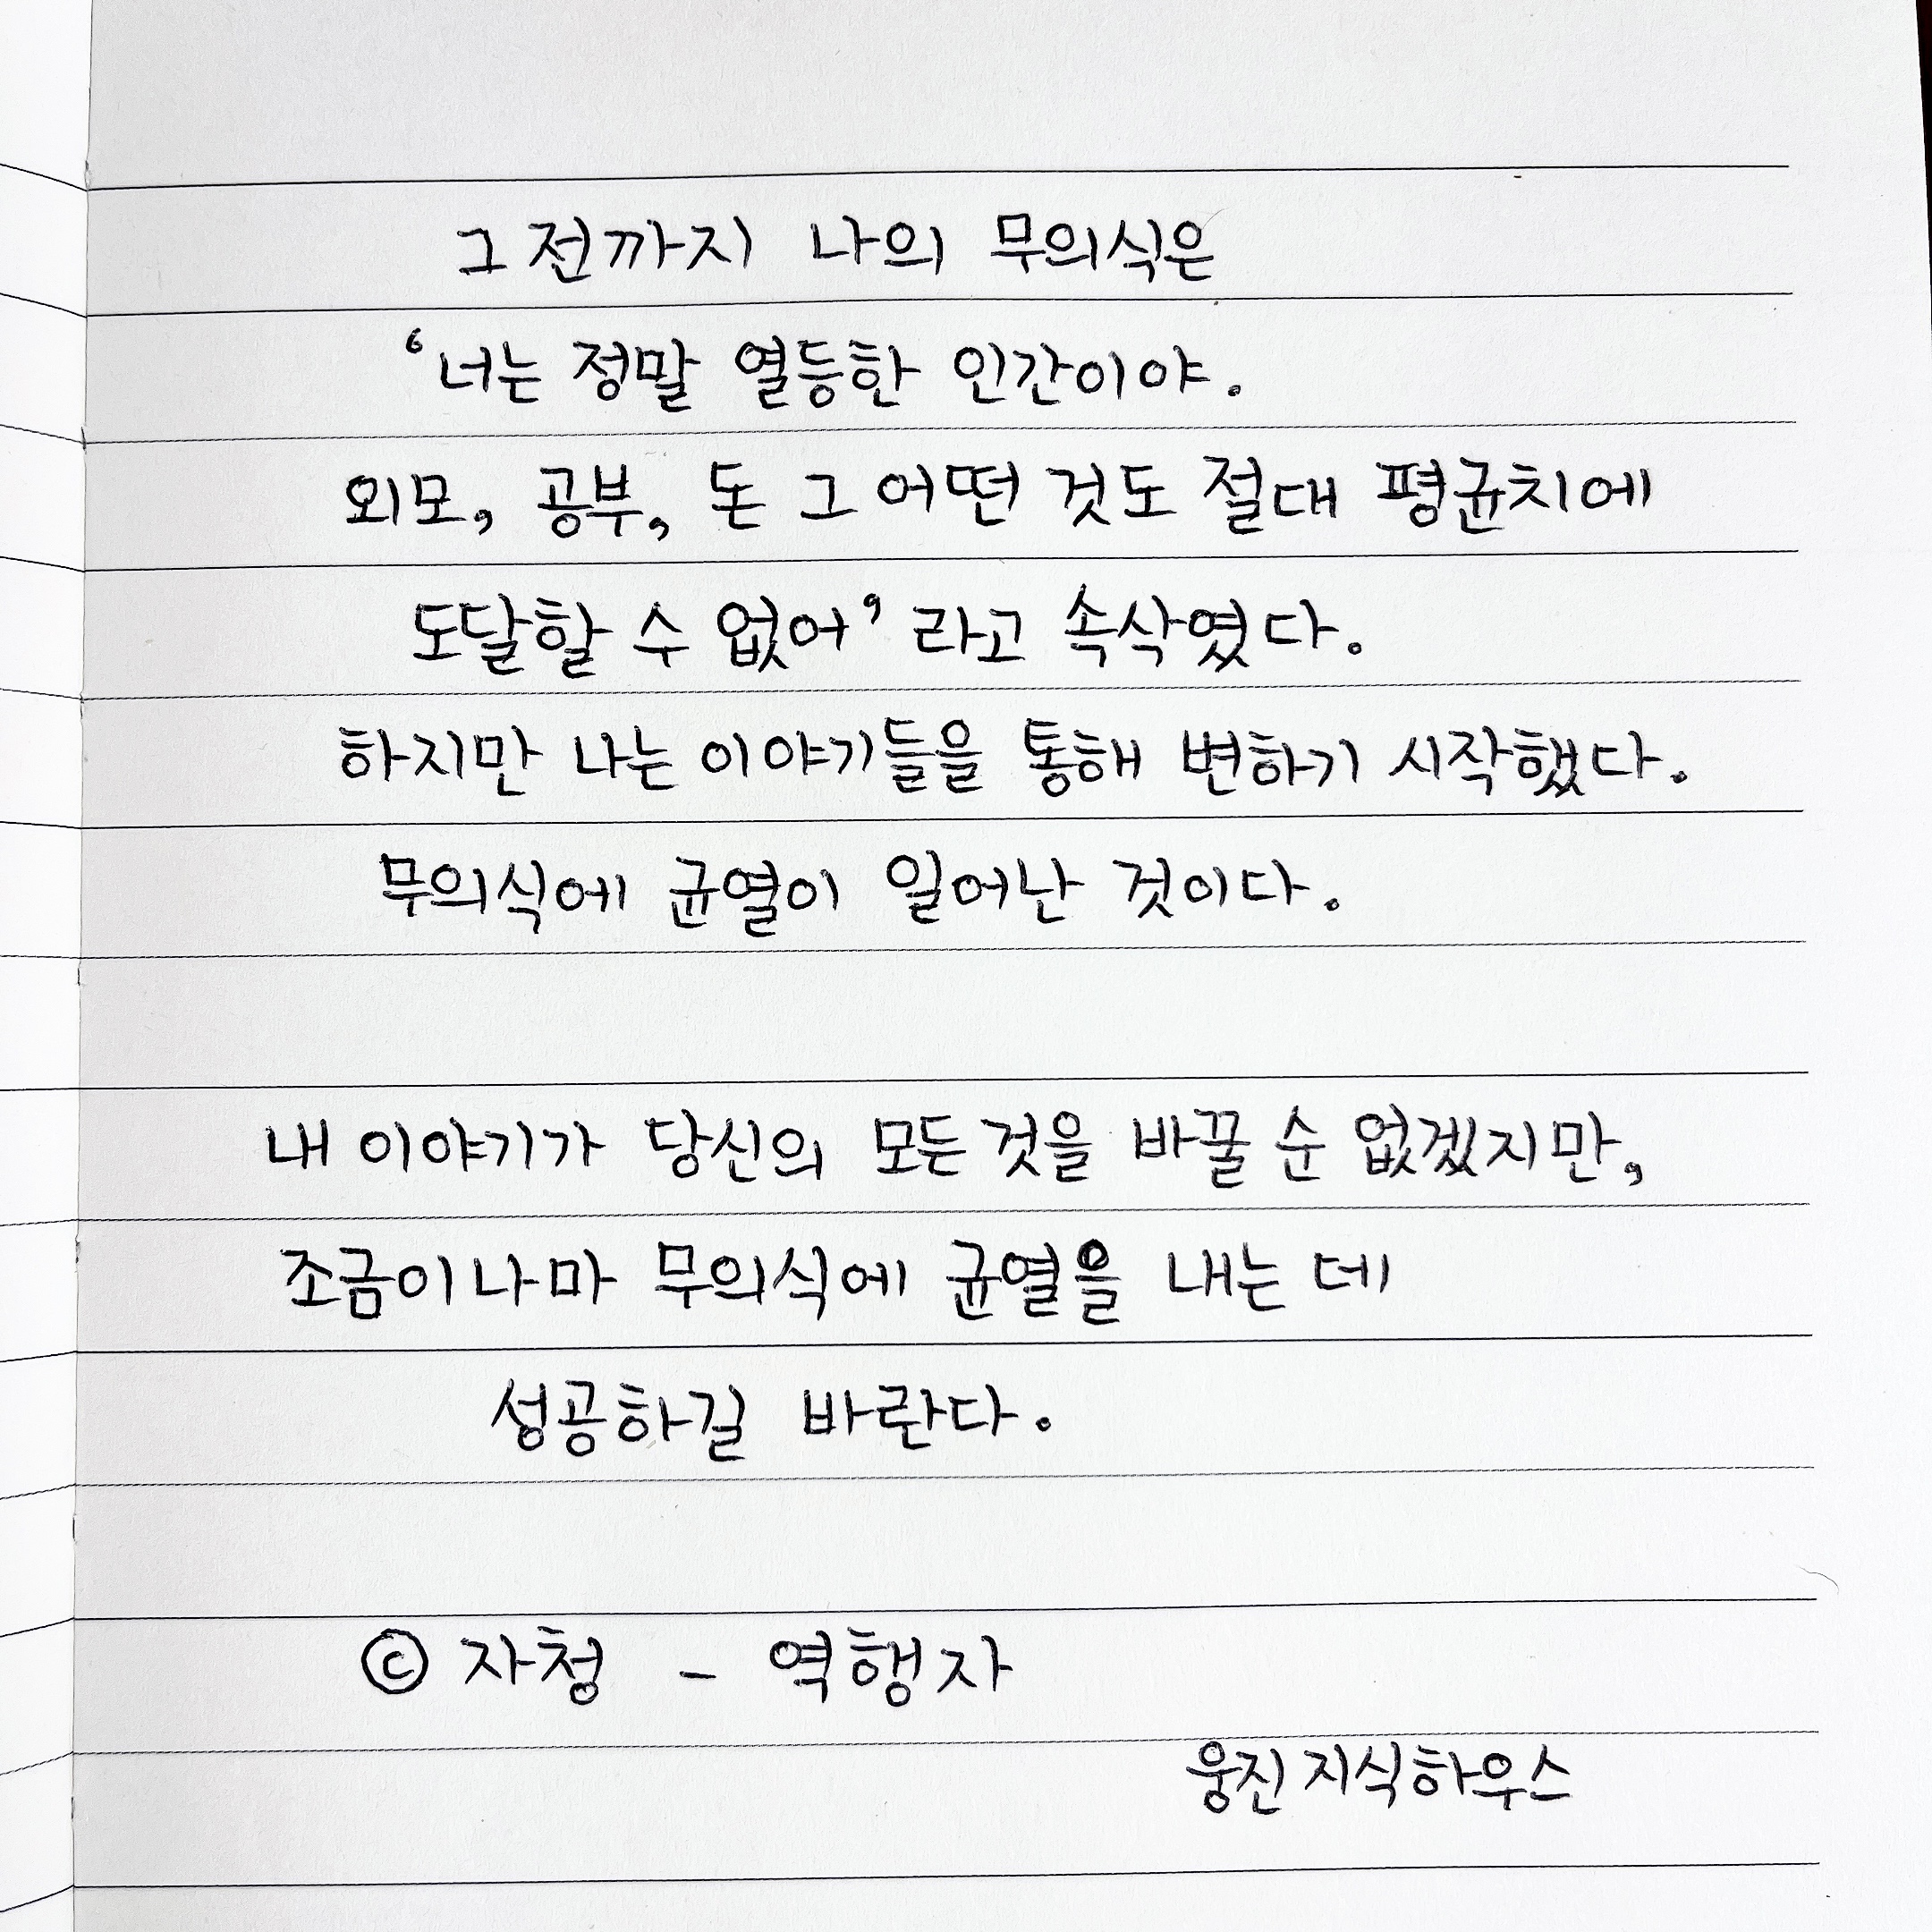 그 전까지 나의 무의식은
‘너는 정말 열등한 인간이야.
외모, 공부, 돈 그 어떤 것도 절대 평균치에
도달할 수 없어’ 라고 속삭였다.
하지만 나는 이야기들을 통해 변하기 시작했다.
무의식에 균열이 일어난 것이다.
내 이야기가 당신의 모든 것을 바꿀 순 없겠지만,
조금이나마 무의식에 균열을 내는 데
성공하길 바란다.
© 자청 - 역행자
웅진 지식하우스